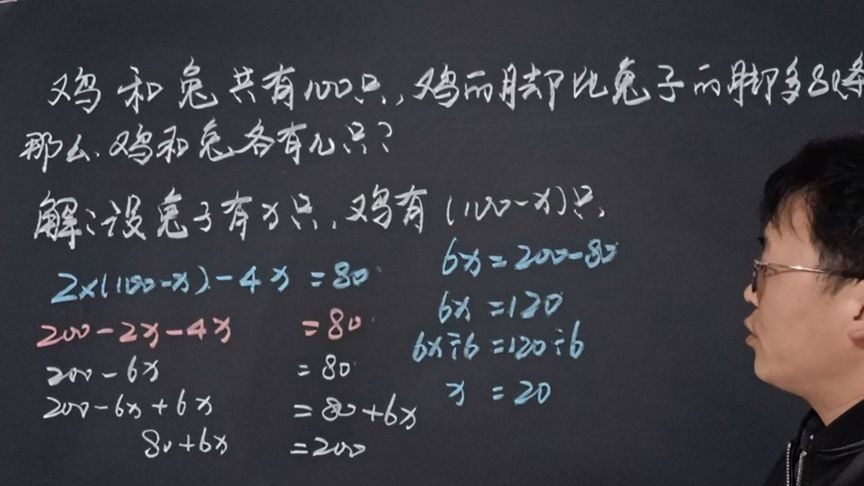 鸡和兔共有100只,鸡的脚比兔子的脚多80条
那么.鸡和兔各有几只?
解:设兔子有x只,鸡有(100-x)只,
2×(100-x)-4x=80
200-2x-4x=80
200-6x=80
200-6x+6x=80+6x
80+6x=200
6x=200-80
6x=120
6x÷6=120÷6
x=20